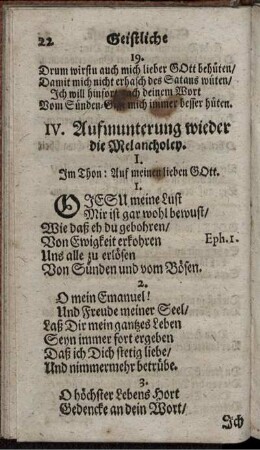 22 Geistliche
19.
Drum wirstu auch mich lieber GOtt behüten/
Damit mich nicht erhasch des Satans wüten/
Ich will hinfort nach deinem Wort
Vom Sünden mich immer besser hüten.
IV. Aufmunterung wieder
die Melancholey.
I.
Im Thon: Auf meinen lieben GOtt.
1.
O JESU meine Lust
Mir ist gar wohl bewust/
Wie daß eh du gebohren/
Von Ewigkeit erkohren Eph. 1.
Uns alle zu erlösen
Von Sünden und vom Bösen.
2.
O mein Emanuel!
Und Freude meiner Seel/
Laß Dir mein gantzes Leben
Seyn immer fort ergeben
Daß ich Dich stetig liebe/
Und nimmermehr betrübe.
3.
O höchster Lebens Hort
Gedencke an dein Wort/
Ich